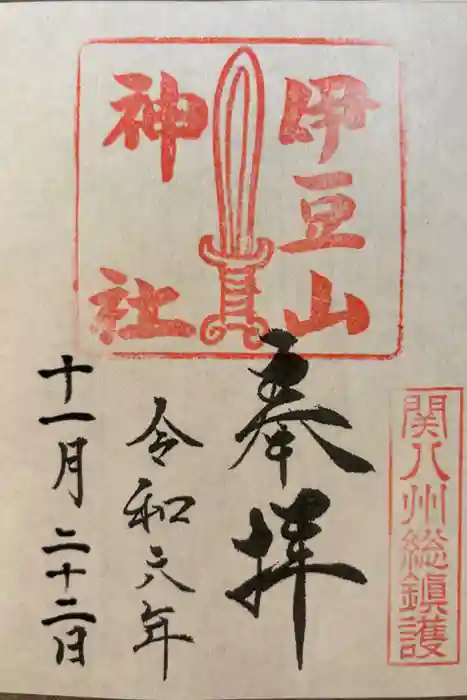 関八州総鎮護
伊豆山
神社
奉拝
令和元年
十一月二十二日